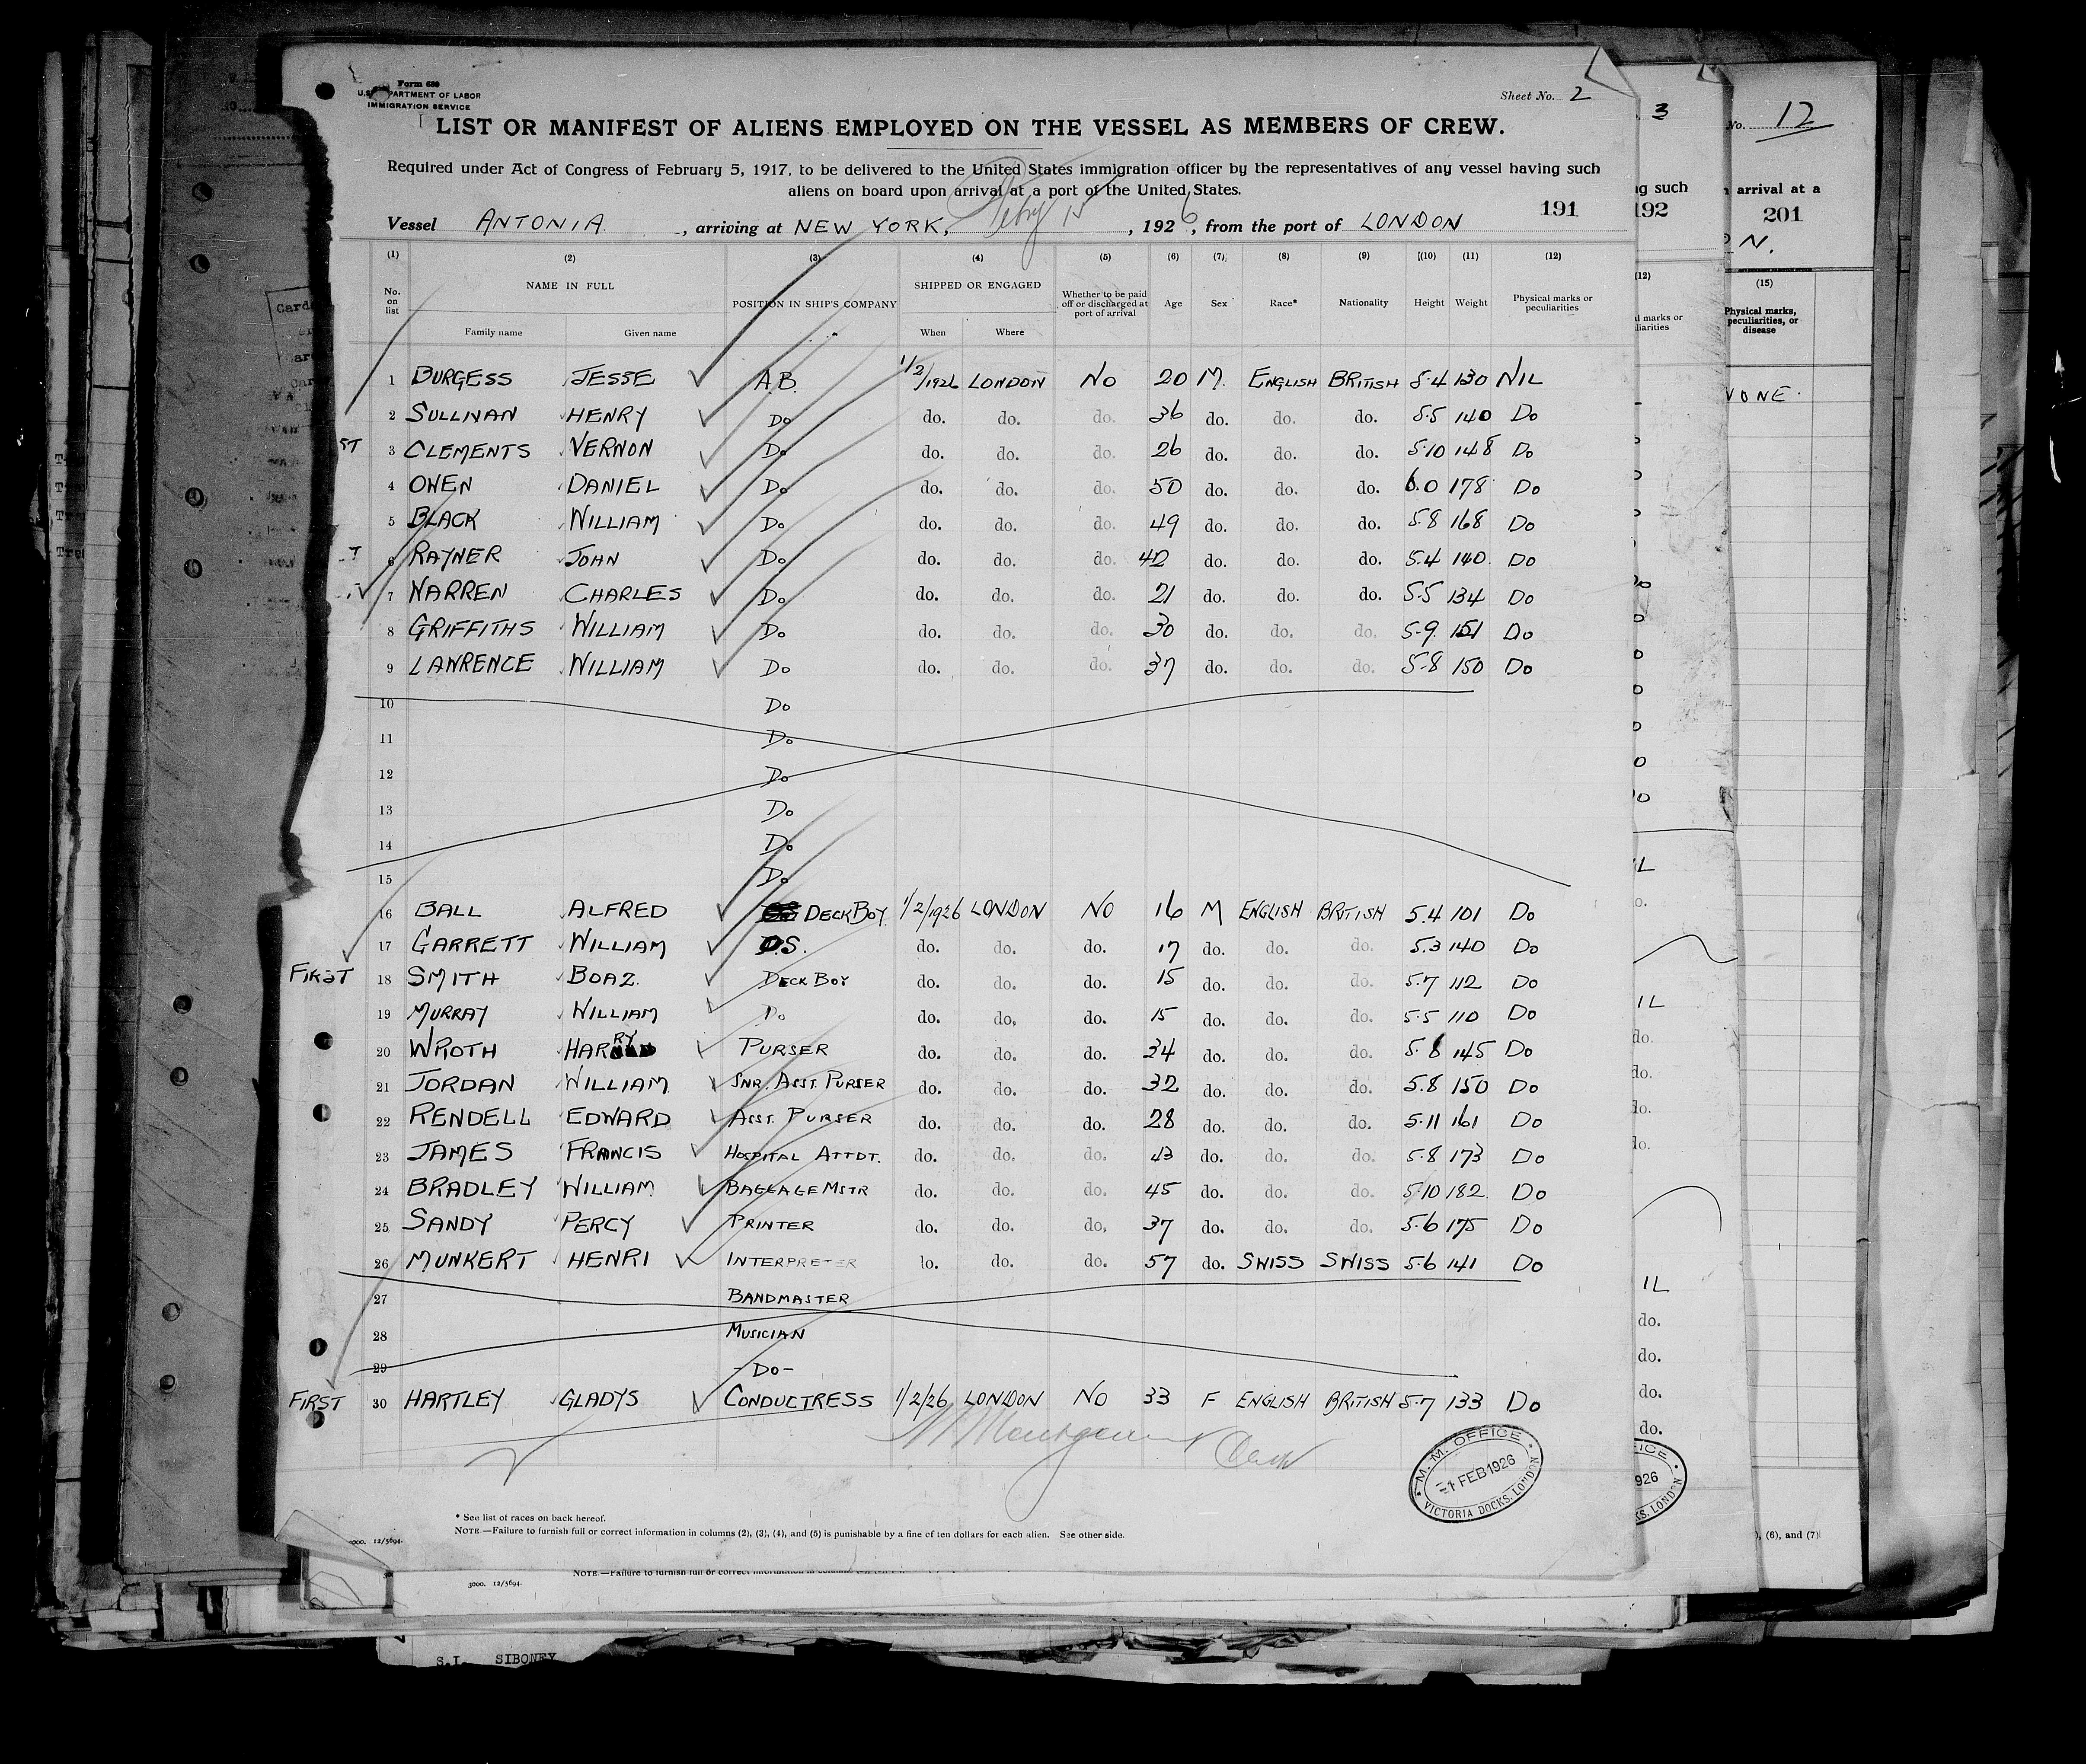 Form 680
U.S. DEPARTMENT OF LABOR
IMMIGRATION SERVICE
Sheet No. 2
LIST OR MANIFEST OF ALIENS EMPLOYED ON THE VESSEL AS MEMBERS OF CREW.
Required under Act of Congress of February 5, 1917, to be delivered to the United States immigration officer by the representatives of any vessel having such
aliens on board upon arrival at a port of the United States.
191
Vessel ANTONIA, arriving at NEW YORK, Feby 15, 1926, from the port of LONDON
(1) (2) (3) (4) (5) (6) (7) (8) (9) (10) (11) (12)
No. on list NAME IN FULL POSITION IN SHIP'S COMPANY SHIPPED OR ENGAGED Whether to be paid off or discharged at port of arrival Age Sex Race* Nationality Height Weight Physical marks or peculiarities
Family name Given name When Where
1 BURGESS JESSE A.B. 1/2/1926 LONDON NO 20 M. ENGLISH BRITISH 5.4 130 NIL
2 SULLIVAN HENRY Do do. do. do. 36 do. do. do. 5.5 140 Do
ST 3 CLEMENTS VERNON Do do. do. do. 26 do. do. do. 5.10 148 Do
4 OWEN DANIEL Do do. do. do. 50 do. do. do. 6.0 178 Do
5 BLACK WILLIAM Do do. do. do. 49 do. do. do. 5.8 168 Do
T 6 RAYNER JOHN Do do. do. do. 42 do. do. do. 5.4 140 Do
7 WARREN CHARLES Do do. do. do. 21 do. do. do. 5.5 134 Do
8 GRIFFITHS WILLIAM Do do. do. do. 30 do. do. do. 5.9 151 Do
9 LAWRENCE WILLIAM Do do. do. do. 37 do. do. do. 5.8 150 Do
10 Do
11 Do
12 Do
13 Do
14 Do
15 Do
16 BALL ALFRED DECK BOY. 1/2/1926 LONDON NO 16 M ENGLISH BRITISH 5.4 101 Do
17 GARRETT WILLIAM O.S. do. do. do. 17 do. do. do. 5.3 140 Do
FIRST 18 SMITH BOAZ. DECK BOY do. do. do. 15 do. do. do. 5.7 112 Do
19 MURRAY WILLIAM Do do. do. do. 15 do. do. do. 5.5 110 Do
20 WROTH HARRY PURSER do. do. do. 34 do. do. do. 5.8 145 Do
21 JORDAN WILLIAM SNR. ASST. PURSER do. do. do. 32 do. do. do. 5.8 150 Do
22 RENDELL EDWARD ASST. PURSER do. do. do. 28 do. do. do. 5.11 161 Do
23 JAMES FRANCIS HOSPITAL ATTDT. do. do. do. 43 do. do. do. 5.8 173 Do
24 BRADLEY WILLIAM BAGGAGE MSTR do. do. do. 45 do. do. do. 5.10 182 Do
25 SANDY PERCY PRINTER do. do. do. 37 do. do. do. 5.6 175 Do
26 MUNKERT HENRI INTERPRETER lo. do. do. 57 do. SWISS SWISS 5.6 141 Do
27 BANDMASTER
28 MUSICIAN
29 -Do-
FIRST 30 HARTLEY GLADYS CONDUCTRESS 1/2/26 LONDON NO 33 F ENGLISH BRITISH 5.7 133 Do
M. M. OFFICE
1 FEB 1926
VICTORIA DOCKS, LONDON
* See list of races on back hereof.
NOTE.—Failure to furnish full or correct information in columns (2), (3), (4), and (5) is punishable by a fine of ten dollars for each alien. See other side.
3000. 12/5694.
3000. 12/5694.
3
ng such
192
(12)
No. 12
arrival at a
201
N.
(15)
Physical marks, peculiarities, or disease
NONE.
IL
do.
do.
do.
do.
IL
do.
do.
do.
do.
926
), (6), and (7)
S.I. SIBONEY